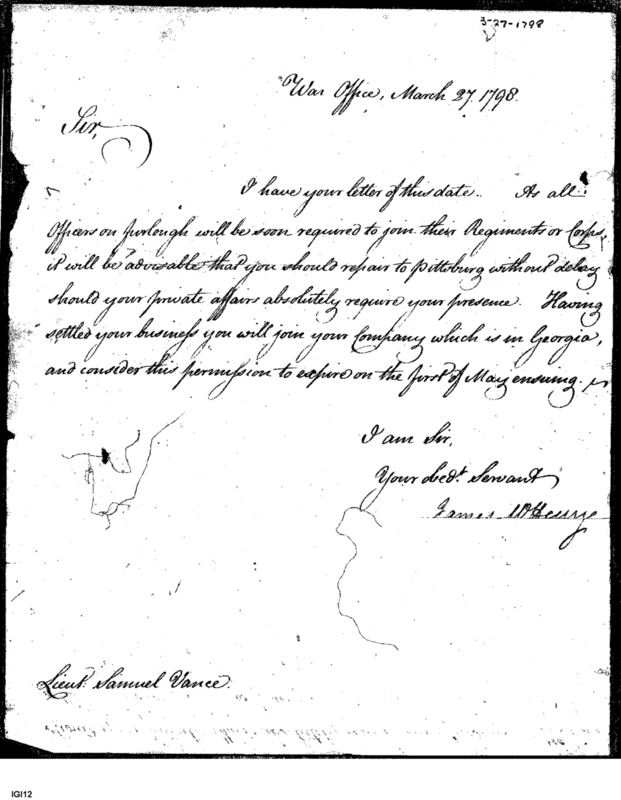 3-27-1798
War Office, March 27. 1798.
Sir,
I have your letter of this date. As all
Officers on furlough will be soon required to join their Regiments or Corps,
it will be advisable that you should repair to Pittsburg without delay
should your private affairs absolutely require your presence. Having
settled your business you will join your Company which is in Georgia,
and consider this permission to expire on the first of May ensuing.
I am Sir,
Your obedt. Servant
James McHenry
Lieut. Samuel Vance.
IGI12